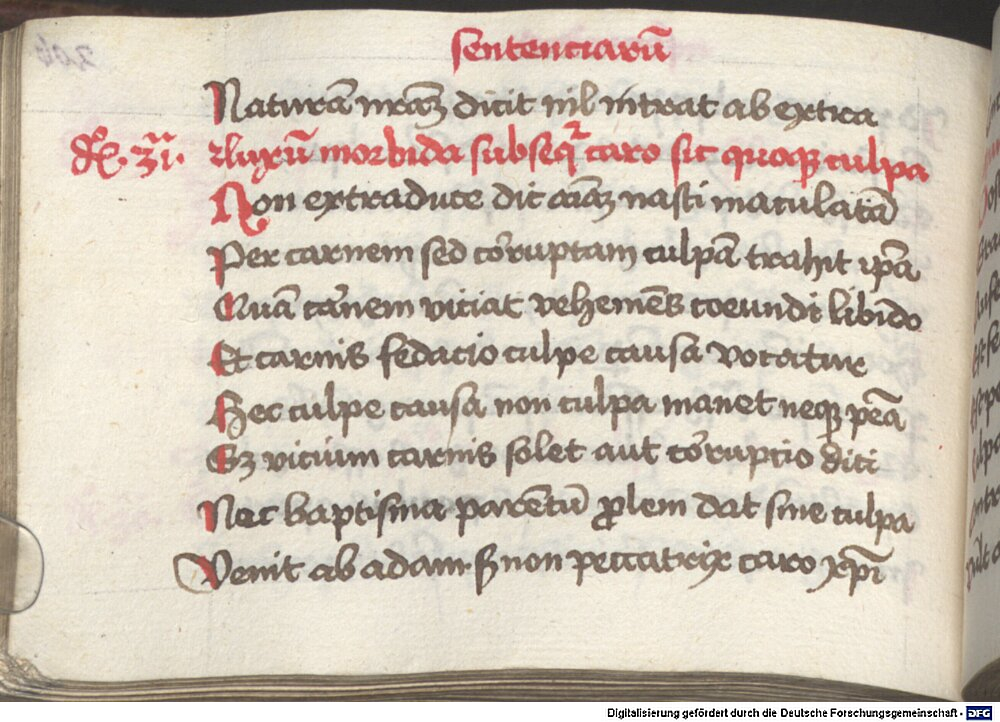 sentenciarū
Naturā nr̄aꝫ dicit nil intrat ab extra
dꝭ. 31. rluxū morbida subseq̄r caro sic quoqꝫ culpa
Non extraduce dic aīaꝫ nasci maculatā
Per carnem sed cōruptam culpā trahit ip̄a
Quā carnem viciat vehemēs coeundi libido
Et carnis fedacio culpe causa vocatur
Hec culpe causa non culpa manet neqꝫ pēa
Sꝫ vicium carnis solet aut cōrupcio dici
Nec baptisma parentū ꝓlem dat sine culpa
Venit ab adam. sꝫ non peccatrix caro xp̄i
Digitalisierung gefördert durch die Deutsche Forschungsgemeinschaft - DFG